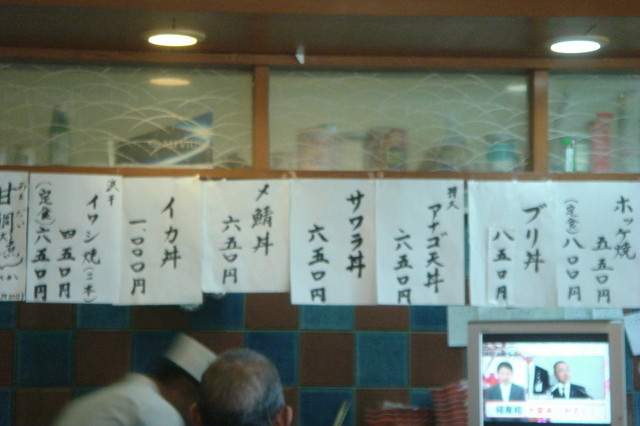 ホッケ焼
五五〇円
(定食)八〇〇円
ブリ丼
八五〇円
特大
アナゴ天丼
六五〇円
サワラ丼
六五〇円
〆鯖丼
六五〇円
イカ丼
一、〇〇〇円
イワシ焼(二本)
四五〇円
(定食)六五〇円
甘鯛